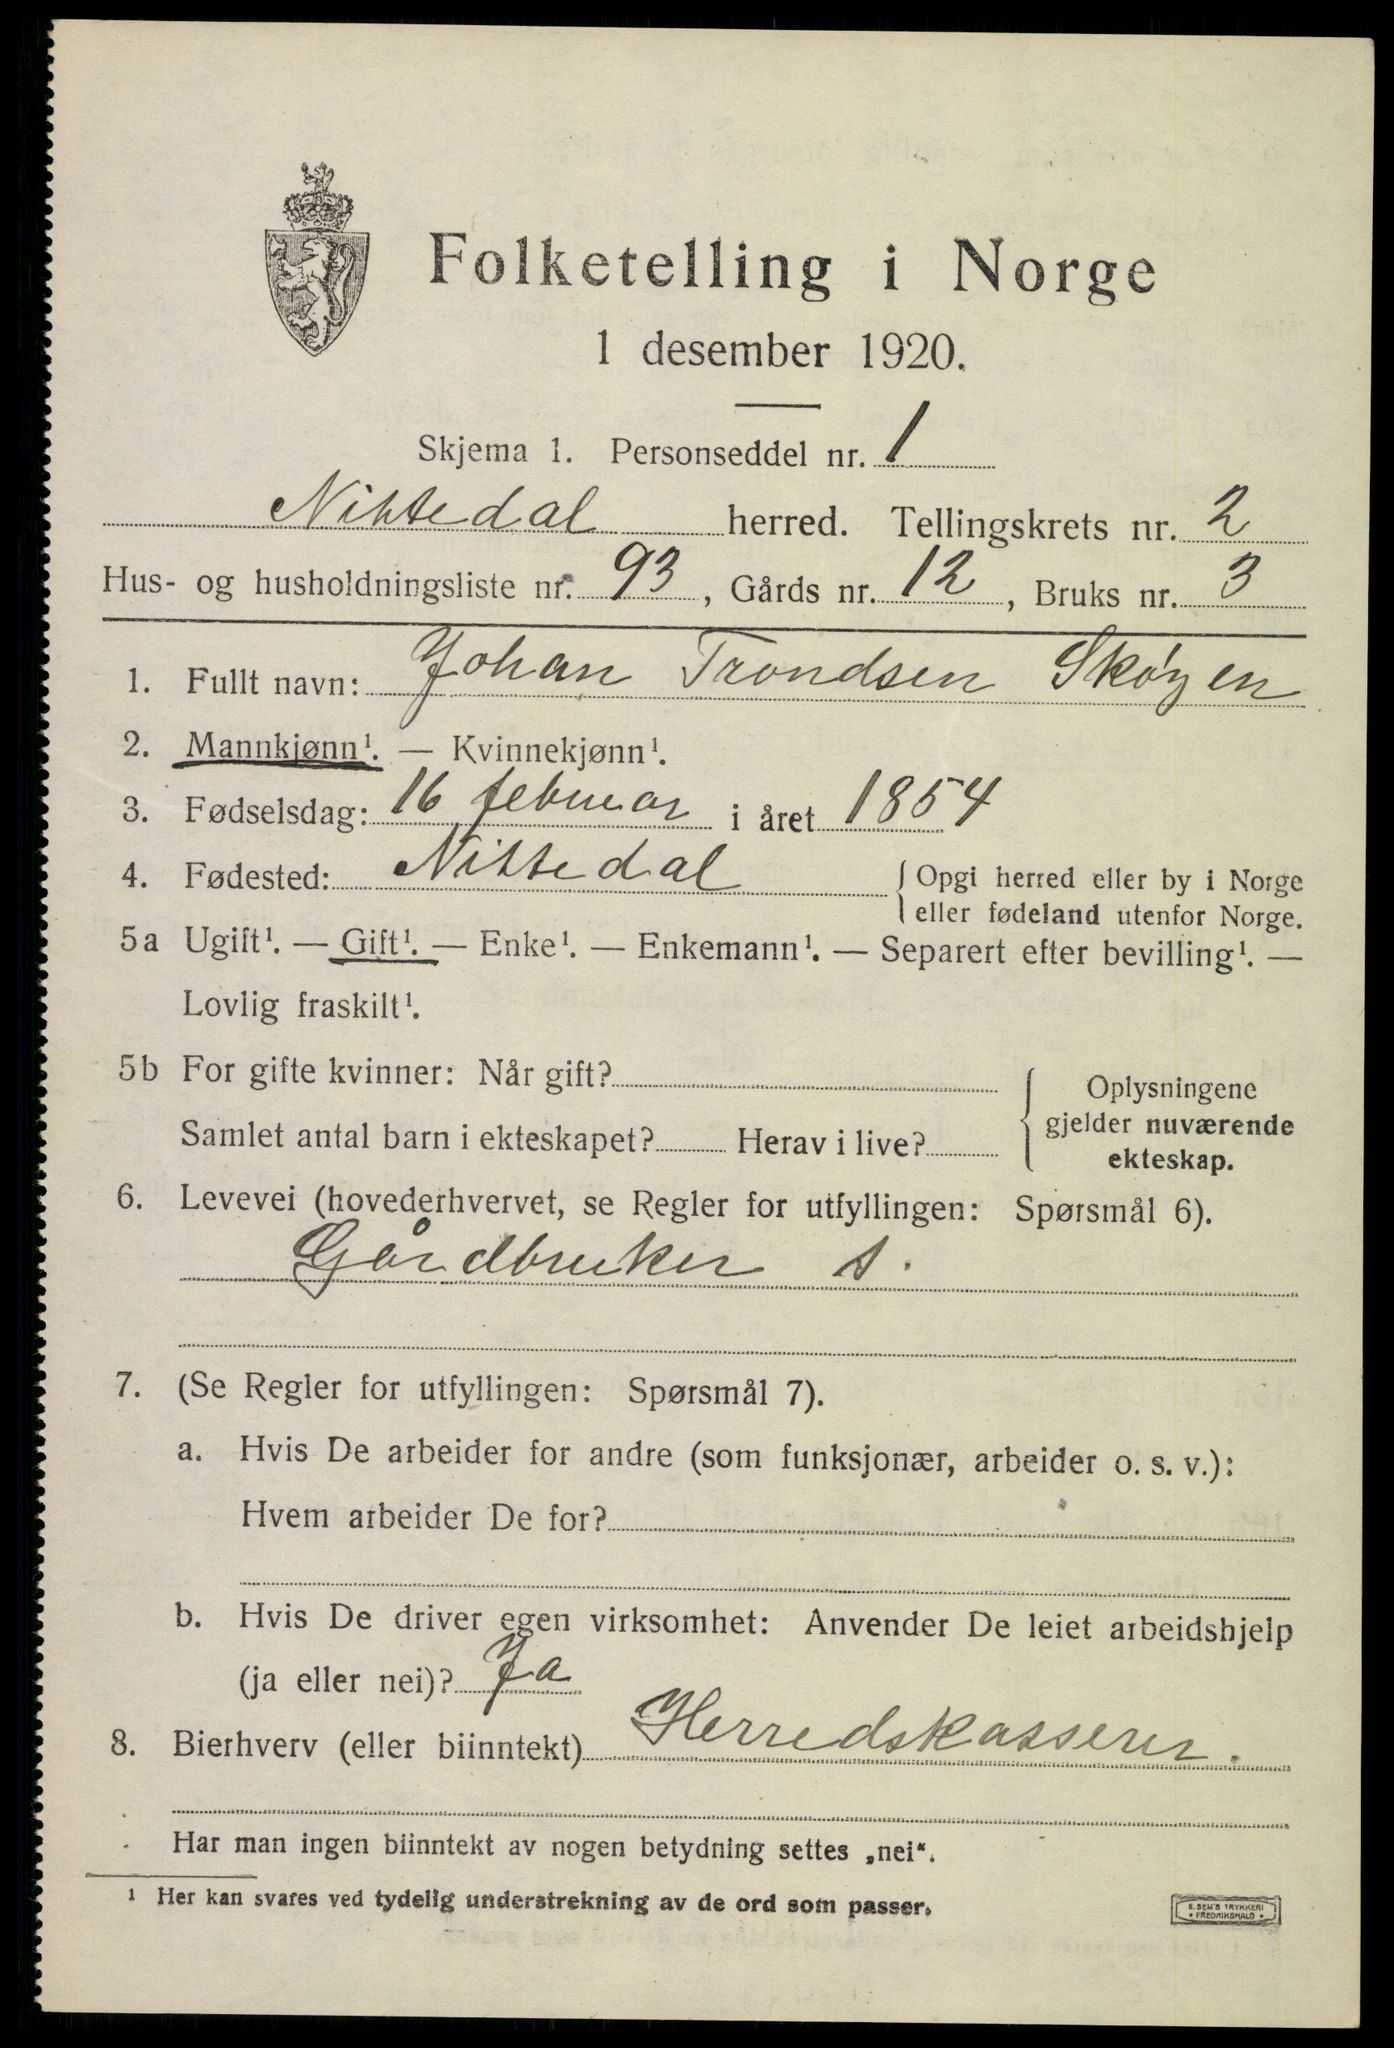 Folketelling i Norge
1 desember 1920.
Skjema 1. Personseddel nr. 1
Nittedal herred. Tellingskrets nr. 2
Hus- og husholdningsliste nr. 93, Gårds nr. 12, Bruks nr. 3
1. Fullt navn: Johan Trondsen Skøyen
2. Mannkjønn¹. — Kvinnekjønn¹.
3. Fødselsdag: 16 februar i året 1854
4. Fødested: Nittedal { Opgi herred eller by i Norge
eller fødeland utenfor Norge.
5a Ugift¹. — Gift¹. — Enke¹. — Enkemann¹. — Separert efter bevilling¹. —
Lovlig fraskilt¹.
5b For gifte kvinner: Når gift?
Samlet antal barn i ekteskapet? Herav i live?
{ Oplysningene
gjelder nuværende
ekteskap.
6. Levevei (hovederhvervet, se Regler for utfyllingen: Spørsmål 6).
Gårdbruker s.
7. (Se Regler for utfyllingen: Spørsmål 7).
a. Hvis De arbeider for andre (som funksjonær, arbeider o. s. v.):
Hvem arbeider De for?
b. Hvis De driver egen virksomhet: Anvender De leiet arbeidshjelp
(ja eller nei)? Ja
8. Bierhverv (eller biinntekt) Herredskasserer.
Har man ingen biinntekt av nogen betydning settes „nei“.
¹ Her kan svares ved tydelig understrekning av de ord som passer.
E. SEM'S TRYKKERI
• FREDRIKSHALD •